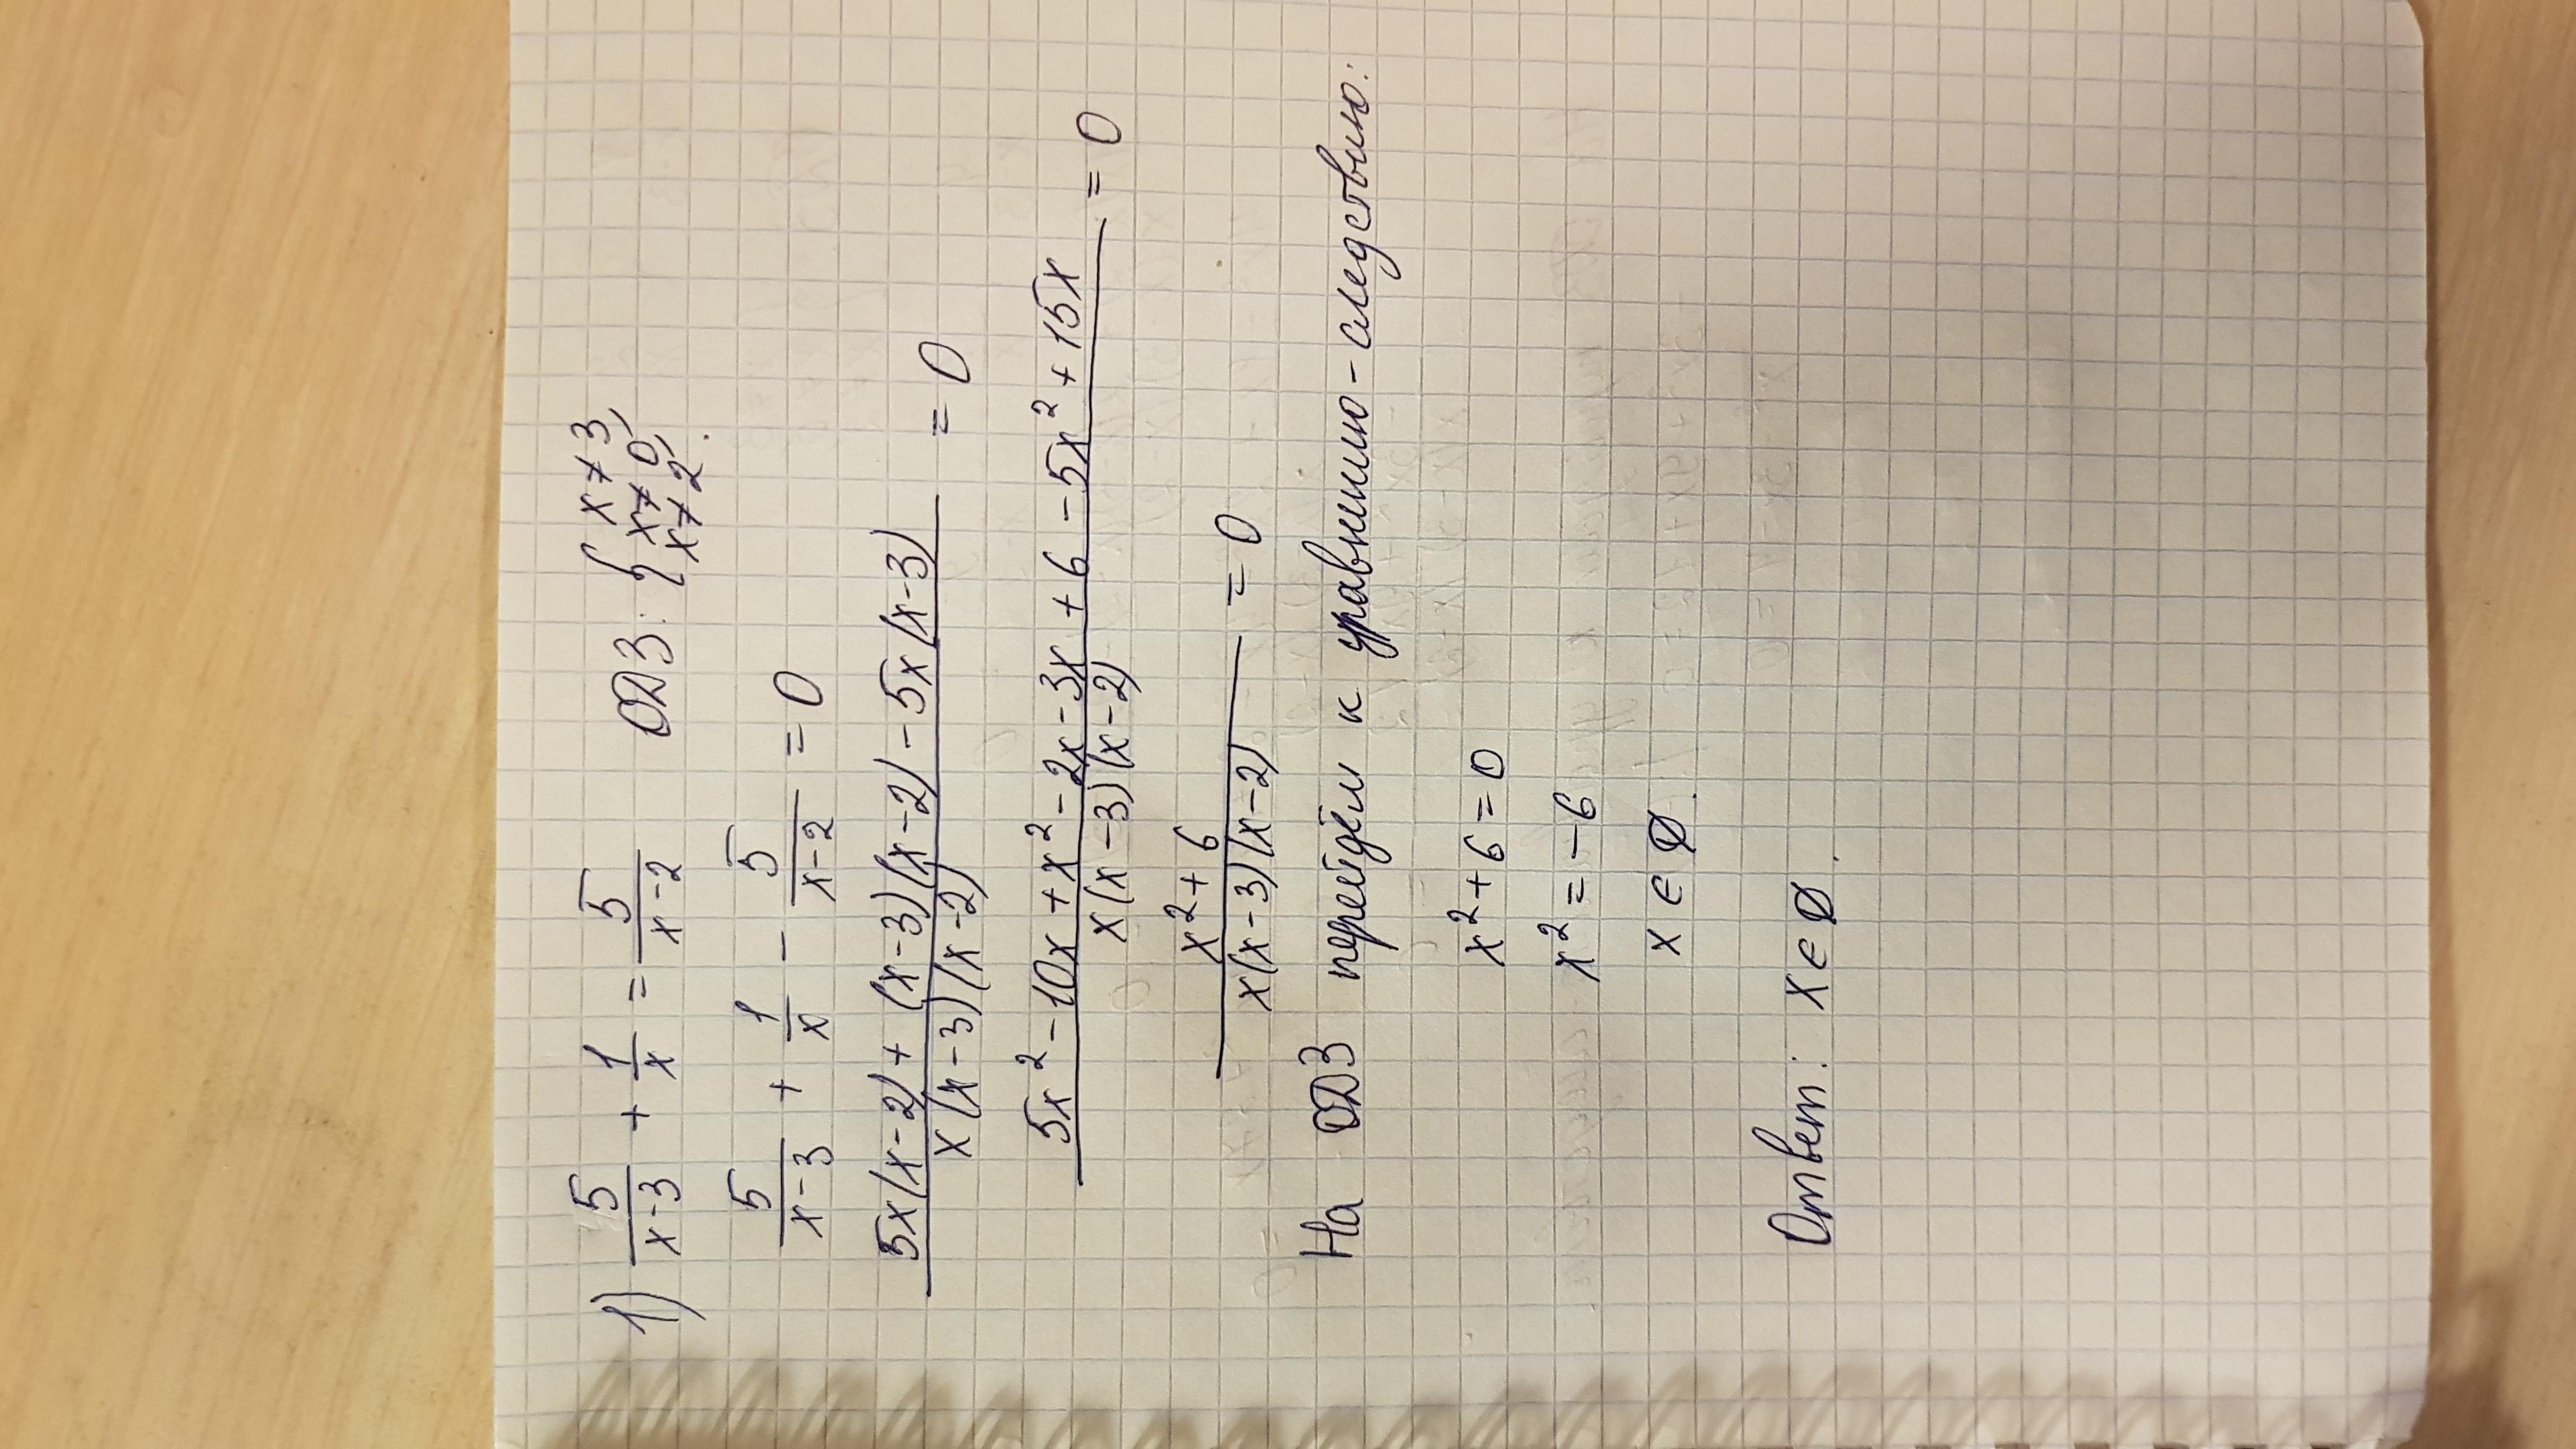 1) 5/(x-3) + 1/x = 5/(x-2) ОДЗ: { x≠3, x≠0, x≠2.
5/(x-3) + 1/x - 5/(x-2) = 0
(5x(x-2) + (x-3)(x-2) - 5x(x-3))/(x(x-3)(x-2)) = 0
(5x² - 10x + x² - 2x - 3x + 6 - 5x² + 15x)/(x(x-3)(x-2)) = 0
(x² + 6)/(x(x-3)(x-2)) = 0
На ОДЗ перейдём к уравнению-следствию:
x² + 6 = 0
x² = -6
x ∈ ∅.
Ответ: x ∈ ∅.